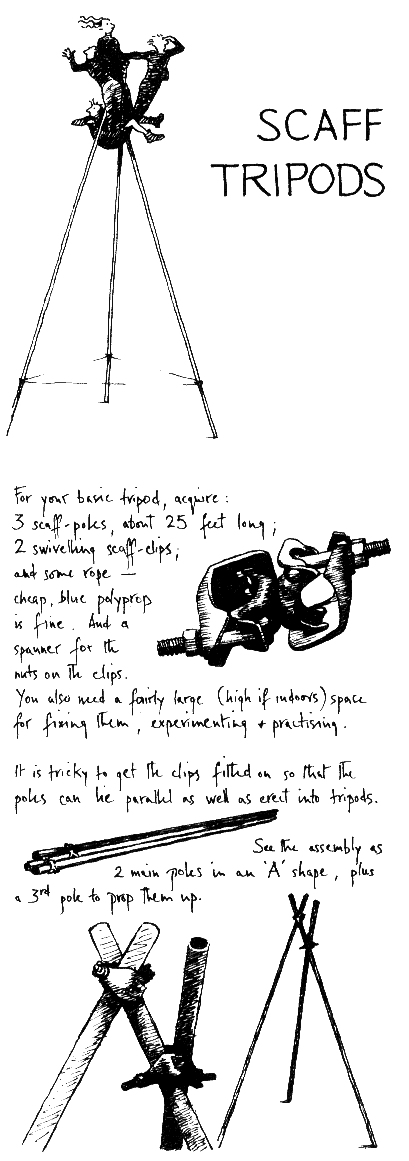 SCAFF
TRIPODS
For your basic tripod, acquire :
3 scaff-poles, about 25 feet long ;
2 swivelling scaff-clips ;
and some rope —
cheap, blue polyprop
is fine. And a
spanner for the
nuts on the clips.
You also need a fairly large (high if indoors) space
for fixing them, experimenting + practising.
It is tricky to get the clips fitted on so that the
poles can lie parallel as well as erect into tripods.
See the assembly as
2 main poles in an 'A' shape, plus
a 3rd pole to prop them up.